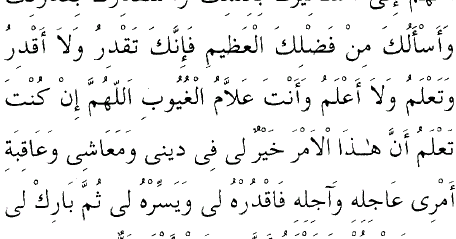 وَأَسْأَلُكَ مِنْ فَضْلِكَ الْعَظِيمِ فَإِنَّكَ تَقْدِرُ وَلَا أَقْدِرُ
وَتَعْلَمُ وَلَا أَعْلَمُ وَأَنْتَ عَلَّامُ الْغُيُوبِ اَللّٰهُمَّ إِنْ كُنْتَ
تَعْلَمُ أَنَّ هٰـذَا الْاَمْرَ خَيْرٌ لى فِى دينى وَمَعَاشِى وَعَاقِبَةِ
أَمْرِى عَاجِلِهِ وَآجِلِهِ فَاقْدُرْهُ لى وَيَسِّرْهُ لى ثُمَّ بَارِكْ لى